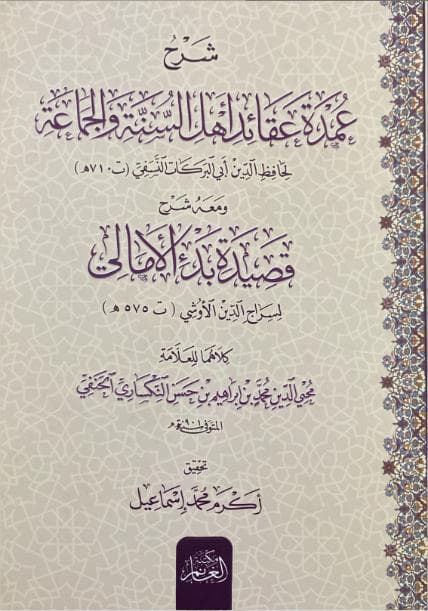 شرح
عمدة عقائد أهل السنة والجماعة
لحافظ الدين أبي البركات النسفي (ت ٧١٠هـ)
ومعه شرح
قصيدة بدء الأمالي
لسراج الدين الأوشي (ت ٥٧٥ هـ)
كلاهما للعلامة
محيي الدين محمد بن إبراهيم بن حسن النكساري الحنفي
المتوفى سنة ٩٠١ هـ
تحقيق
أكرم محمد إسماعيل
مكتبة
الغانم